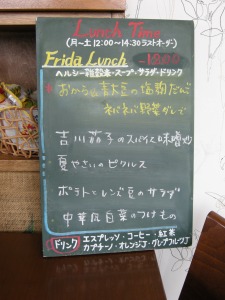 Lunch Time
(月〜土 12:00〜14:30 ラストオーダー)
Frida Lunch
ヘルシー雑穀米・スープ・サラダ・ドリンク
おからと青大豆の塩麹だんご
ネバネバ野菜ダレで
吉川茄子のスパイス味噌炒
夏やさいのピクルス
ポテトとレンズ豆のサラダ
中華風白菜のつけもの
ドリンク エスプレッソ・コーヒー・紅茶
カプチーノ・オレンジJ・グレープフルーツJ